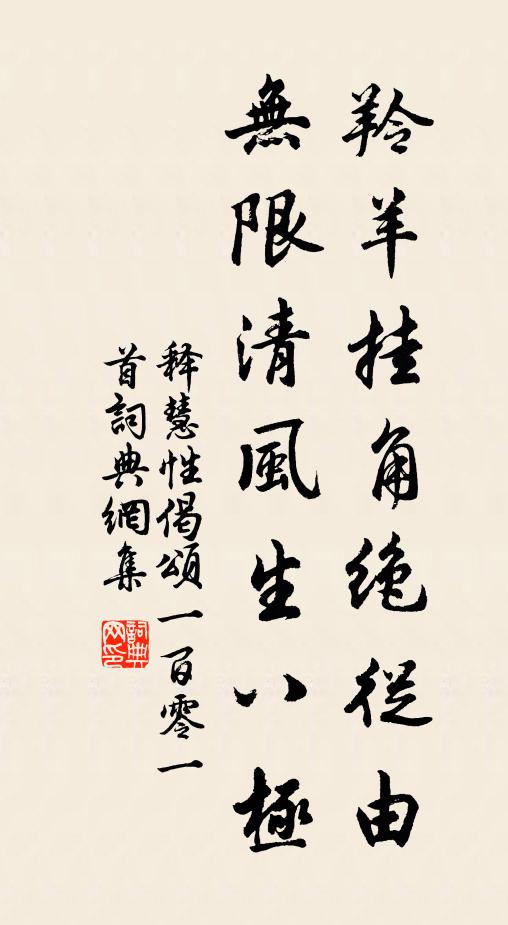 羚羊挂角絶從由
無限清風生八極
释慧性偈頌一百零一
首詞典網集
詞典
网印